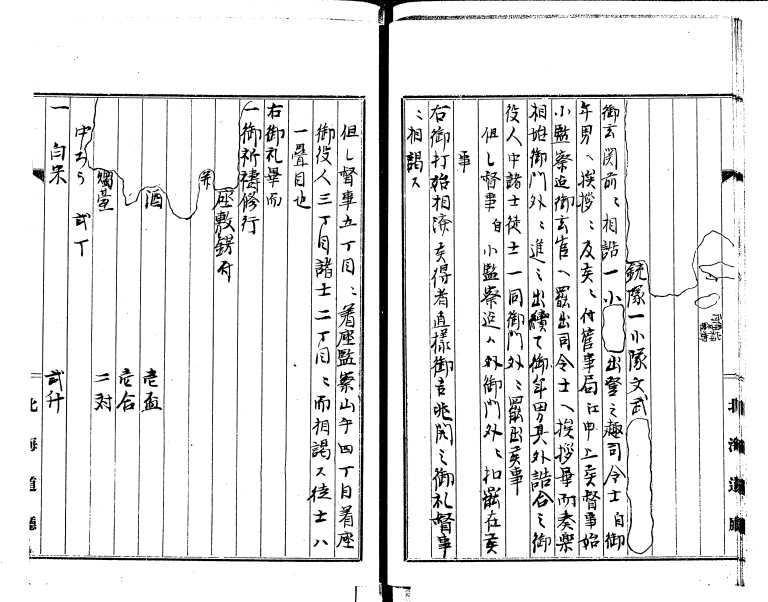 銃隊一小隊文武
御玄関前ニ相詰一小 出璧之趣司令士自御
年男ヘ挨拶ニ及亥ニ付管事局江申上亥督事始
小監察迄御玄官ヘ罷出司令士ヘ挨拶畢而奏楽
相始御門外ニ進ミ出続て御年男其外詰合之御
役人中諸士徒士一同御門外ニ罷出亥事
但し督事自小監察迄ハ外御門外ニ扣罷在亥
事
右御打始相済亥得者直様御吉兆開之御礼督事
ニ相謁ス
北海道廳
但し督事五丁目ニ着座監察山午四丁目着座
御役人三丁目諸士二丁目ニ而相謁ス徒士ハ
一畳目也
右御礼畢而
一御祈禱修行
座敷錺付
弁
酒 壱盃
壱合
燭臺 二対
中ろう 弐丁
一白米 弐升
北海道廳